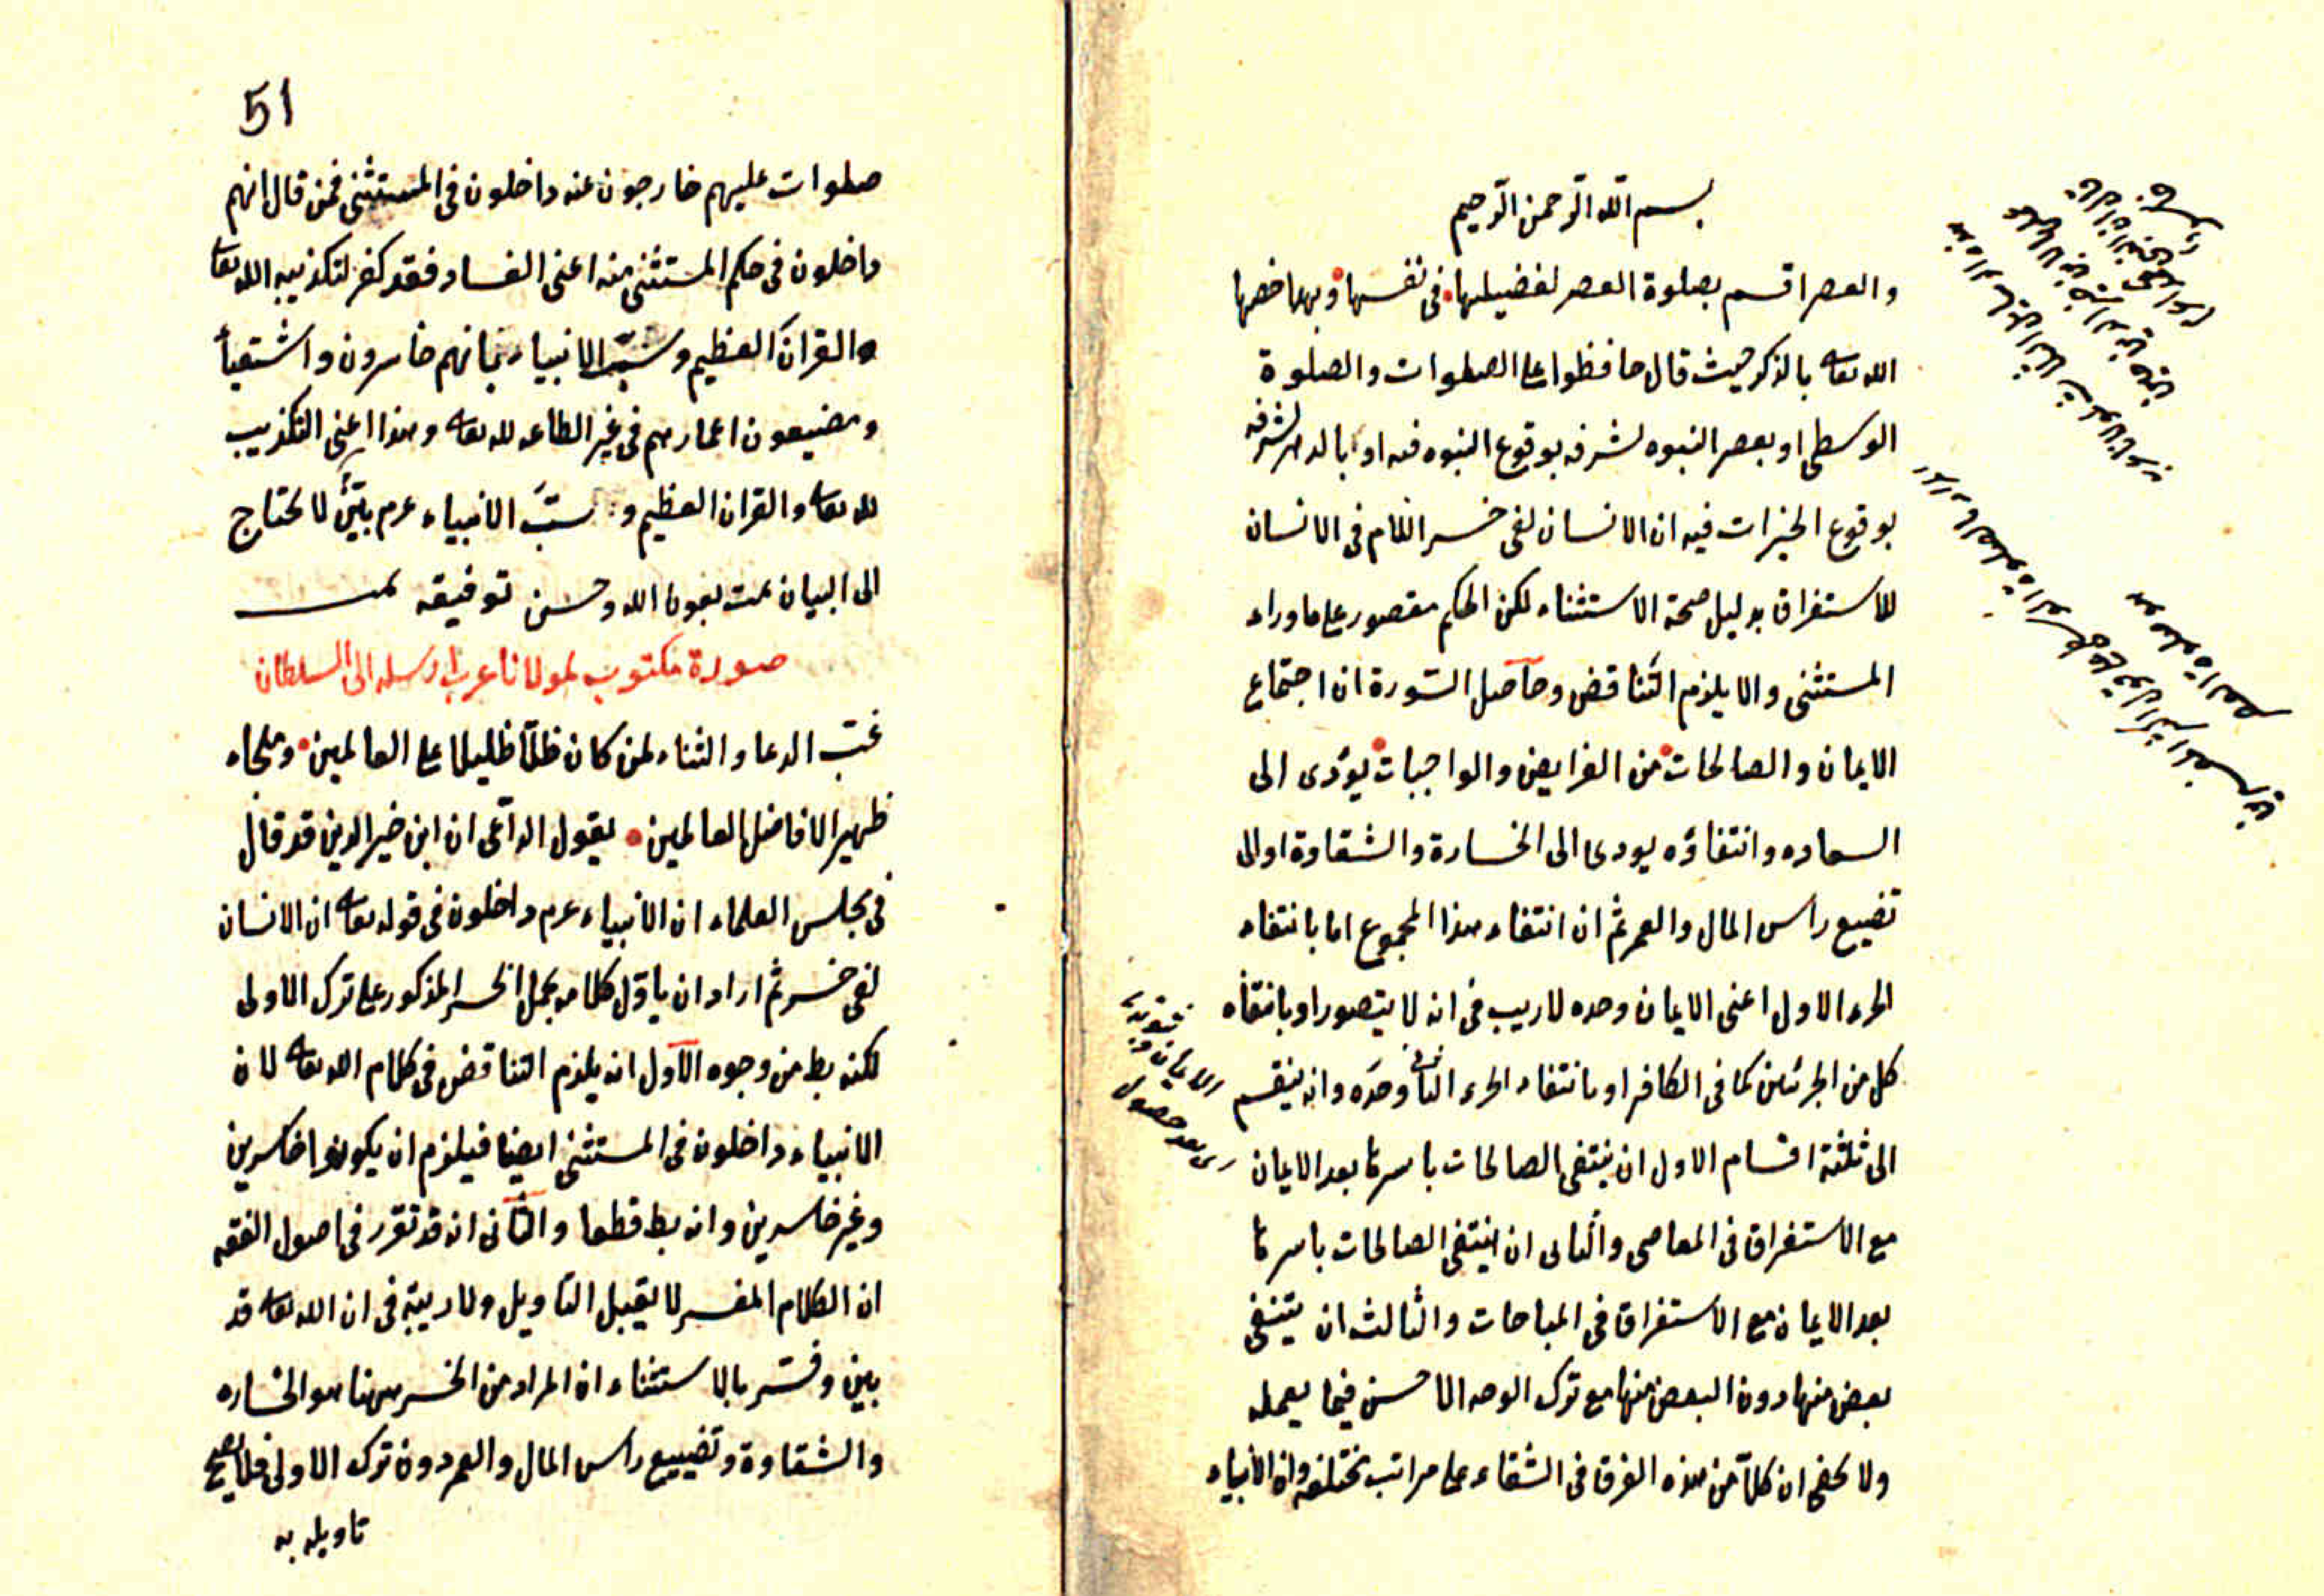 بسم الله الرحمن الرحيم
والعصر اقسم بصلوة العصر لفضيلتها فى نفسها ولهذا خصها
الله تعا بالذكر حيث قال حافظوا على الصلوات والصلوة
الوسطى او بعصر النبوه لشرفه بوقوع النبوه فيه او بالدهر لشرفه
بوقوع الخيرات فيه ان الانسان لفى خسر اللام فى الانسان
للاستغراق بدليل صحة الاستثناء لكن الحكم مقصور على ماوراء
المستثنى والا يلزم التناقض وحاصل السورة ان اجتماع
الايمان والصالحات من الفرايض والواجبات يؤدى الى
السعاده وانتفاؤه يودى الى الخسارة والشقاوة او الى
تضييع راس المال والعمر ثم ان انتفاء هذا المجموع اما بانتفاء
الجزء الاول اعنى الايمان وحده لا ريب فى انه لا يتصور او بانتفاء
كل من الجزئين كما فى الكافر او بانتفاء الجزء الثانى وحده وانه ينقسم
الى ثلثة اقسام الاول ان ينتفى الصالحات باسرها بعد الايمان
مع الاستغراق فى المعاصى والثانى ان ينتفى الصالحات باسرها
بعد الايمان مع الاستغراق فى المباحات والثالث ان ينتفى
بعض منها دون البعض منها مع ترك الوجه الاحسن فيما يعمله
ولا يخفى ان كلا من هذه الفرق فى الشقاء على مراتب مختلفه وان الانبياء
51
صلوات عليهم خارجون عنه داخلون فى المستثنى فمن قال انهم
داخلون فى حكم المستثنى منه اعنى الفساد فقد كفر لتكذيبه الله تعا
والقران العظيم وسب الانبياء بانهم خاسرون واشقياء
ومضيعون اعمارهم فى غير الطاعه لله تعا وهذا اعنى التكذيب
لله تعا والقران العظيم و سب الانبياء عرم بين لا يحتاج
الى البيان تمت بعون الله وحسن توفيقه تمت
صورة مكتوب لمولانا عرب ارسله الى السلطان
غب الدعا والثناء لمن كان ظلا ظليلا على العالمين وملجاء
ظهير الافاضل العالمين يقول الداعى ان ابن خير الدين قد قال
فى مجلس العلماء ان الانبياء عرم داخلون فى قوله تعا ان الانسان
لفى خسر ثم اراد ان ياول كلامه بحمل الخسر المذكور على ترك الاولى
لكنه بط من وجوه الاول انه يلزم التناقض فى كلام الله تعا لان
الانبياء داخلون فى المستثنى ايضا فيلزم ان يكونوا خاسرين
وغير خاسرين وانه بط قطعا والثانى انه قد تقرر فى اصول الفقه
ان الكلام المفسر لا يقبل التاويل ولا ريبة فى ان الله تعا قد
بين وفسر بالاستثناء ان المراد من الخسر ههنا هو الخساره
والشقاوة وتضييع راس المال والعمر دون ترك الاولى فلا يصح
تاويله به